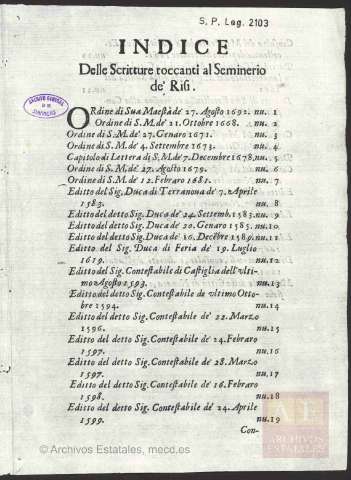 S. P. Leg. 2103
INDICE
Delle Scritture toccanti al Seminerio
de' Risi.
ARCHIVO GENERAL
DE
SIMANCAS
ORdine di Sua Maestà de' 27. Agosto 1692. nu. 1
Ordine di S.M. de' 21. Ottobre 1668. nu. 2
Ordine di S.M. de' 27. Genaro 1671. nu. 3
Ordine di S.M. de' 4. Settembre 1673. nu. 4
Capitolo di Lettera di S.M. de' 7. Decembre 1678. nu. 5
Ordine di S.M. de' 27. Agosto 1679. nu. 6
Ordine di S.M. de' 12. Febraro 1681. nu. 7
Editto del Sig. Duca di Terranoua de' 7. Aprile
1583. nu. 8
Editto del detto Sig. Duca de' 24. Settemb. 1583. nu. 9
Editto del detto Sig. Duca de' 20. Genaro 1585. nu. 10
Editto del detto Sig. Duca de' 16. Decēbre 1589. nu. 11
Editto del Sig. Duca di Feria de' 19. Luglio
1619. nu. 12
Editto del Sig. Contestabile di Castiglia dell'vlti-
mo Agosto 1593. nu. 13
Editto del detto Sig. Contestabile de vltimo Otto-
bre 1594. nu. 14
Editto del detto Sig. Contestabile de' 22. Marzo
1596. nu. 15
Editto del detto Sig. Contestabile de' 14. Febraro
1597. nu. 16
Editto del detto Sig. Contestabile de' 28. Marzo
1597. nu. 17
Editto del detto Sig. Contestabile de' 16. Febraro
1598. nu. 18
Editto del detto Sig. Contestabile de' 24. Aprile
1599. nu. 19
Con-
© Archivos Estatales, mecd.es
AE
ARCHIVOS
ESTATALES